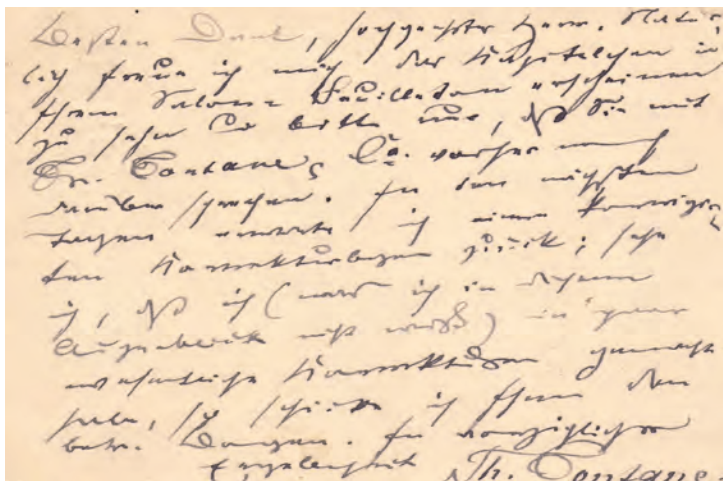 Besten Dank, hochgeehrter Herr. Natür-
lich freue ich mich das Kapitelchen in
Ihrem Salon-Feuilleton erscheinen
zu sehn u. bitte nur, daß Sie mit
Fr. Fontane & Co. vorher noch
darüber sprechen. In den nächsten
Tagen erwarte ich einen korrigir-
ten Korrekturbogen zurück; sehe
ich, daß ich (was ich in diesem
Augenblick nicht weiß) ein paar
wesentliche Korrekturen gemacht
habe, so schicke ich Ihnen den
betr. Bogen. In vorzüglicher
Ergebenheit Th. Fontane.